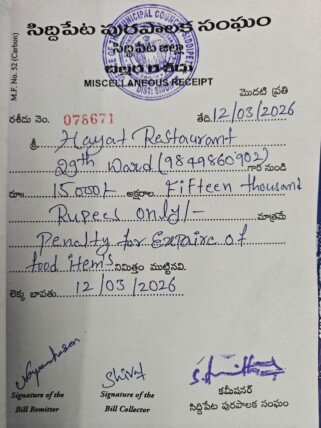 M.F. No. 52 (Carbon)
సిద్దిపేట పురపాలక సంఘం
సిద్దిపేట జిల్లా
బిల్లుల రశీదు
MISCELLANEOUS RECEIPT
మొదటి ప్రతి
రశీదు నెం. 078671 తేది. 12/03/2026
శ్రీ Hayat Restaurant
29th Ward (9849860902) గారి నుండి
రూ: 15000/- అక్షరాల Fifteen thousand
Rupees only/- మాత్రమే
Penalty for Expaire of
food item's నిమిత్తం ముట్టినవి.
లెక్క బాపతు 12/03/2026
Signature of the Bill Remitter
Signature of the Bill Collector
కమీషనర్
సిద్దిపేట పురపాలక సంఘం